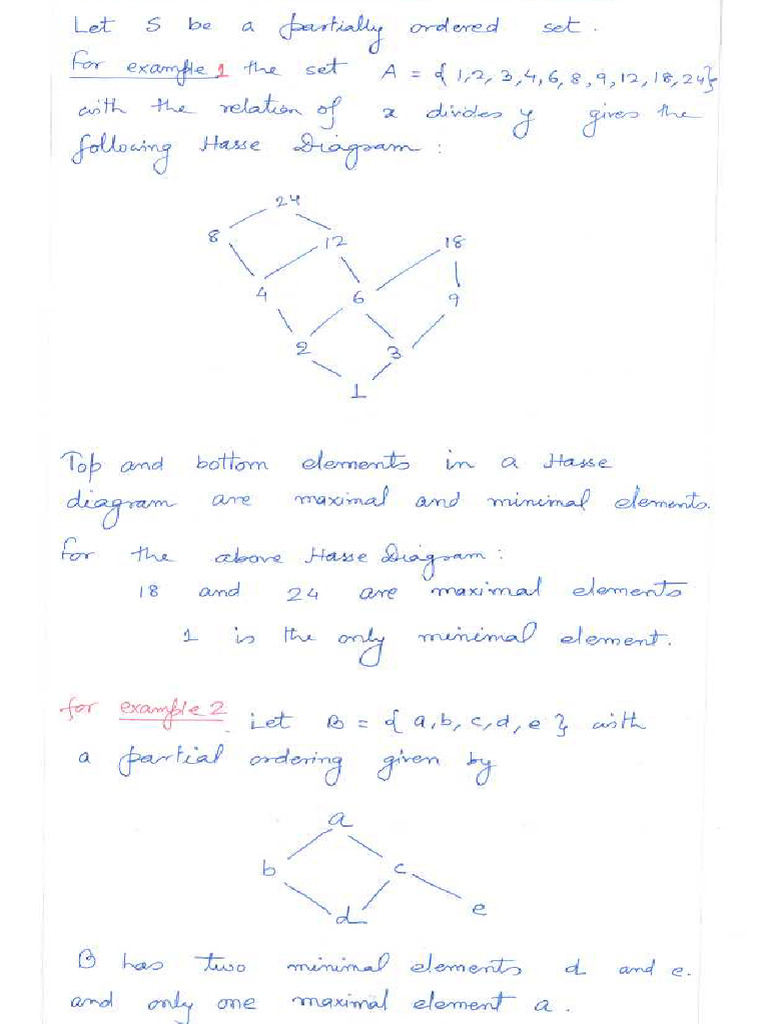 Let S be a partially ordered set.
For example 1 the set A = {1,2,3,4,6,8,9,12,18,24}
with the relation of x divides y gives the
following Hasse Diagram :
24
8 12 18
4 6 9
2 3
1
Top and bottom elements in a Hasse
diagram are maximal and minimal elements.
For the above Hasse Diagram :
18 and 24 are maximal elements
1 is the only minimal element.
for example 2. Let B = {a,b,c,d,e} with
a partial ordering given by
a
b c
d e
B has two minimal elements d and e.
and only one maximal element a.